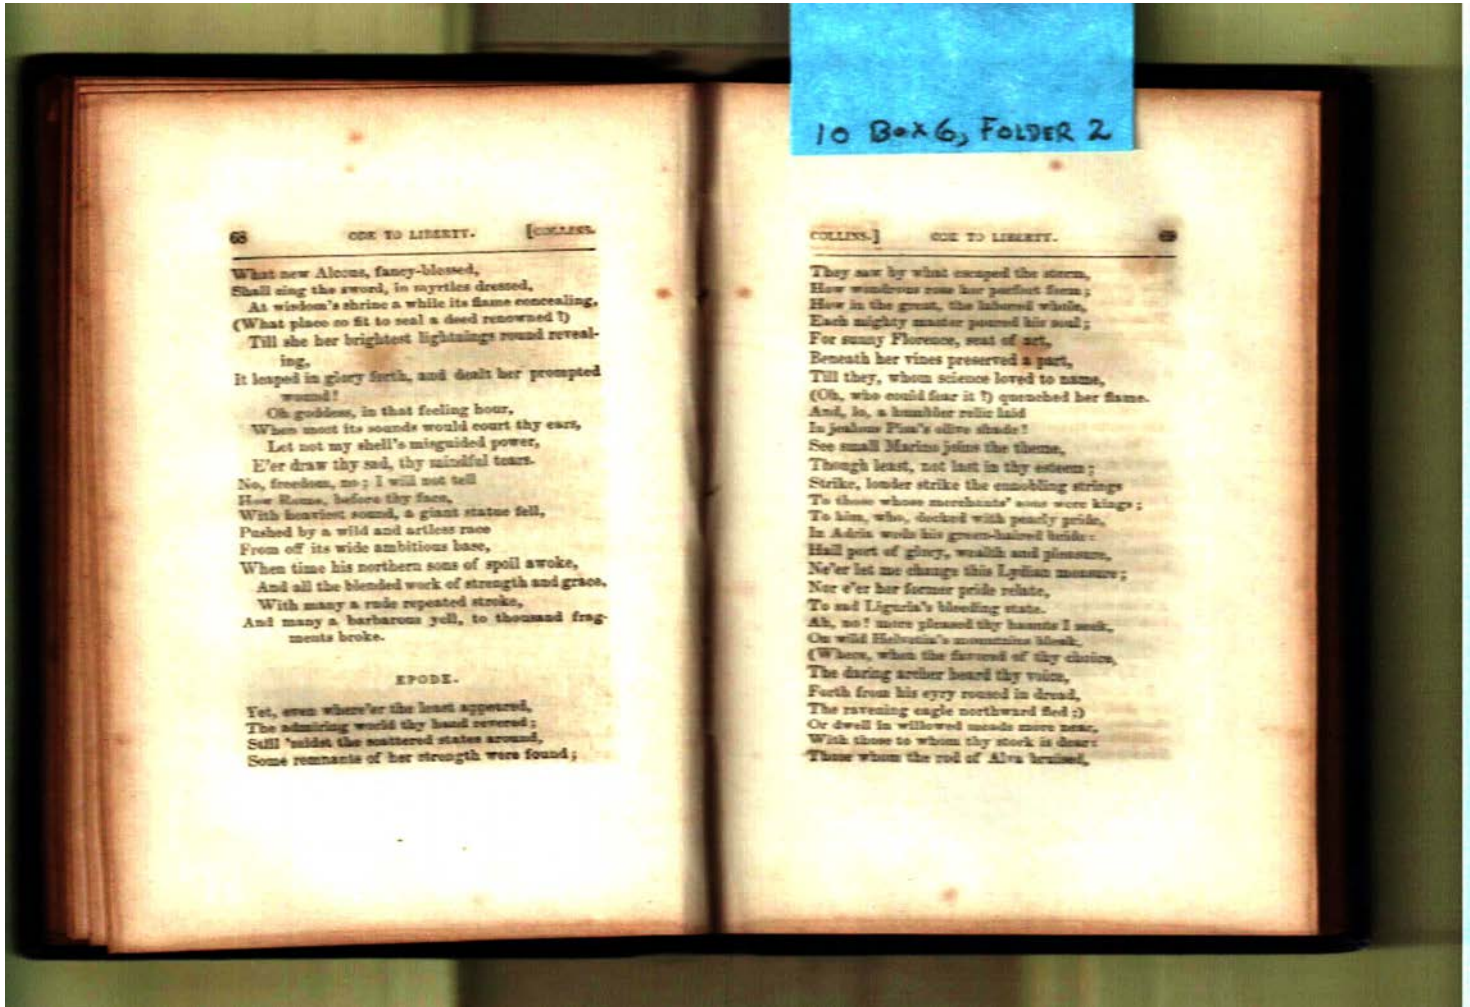 10 BOX 6, FOLDER 2
68 ODE TO LIBERTY. [COLLINS.
What new Alcæus, fancy-blessed,
Shall sing the sword, in myrtles dressed,
At wisdom's shrine a while its flame concealing,
(What place so fit to seal a deed renowned ?)
Till she her brightest lightnings round reveal-
ing,
It leaped in glory forth, and dealt her prompted
wound!
Oh goddess, in that feeling hour,
When most its sounds would court thy ears,
Let not my shell's misguided power,
E'er draw thy sad, thy mindful tears.
No, freedom, no; I will not tell
How Rome, before thy face,
With heaviest sound, a giant statue fell,
Pushed by a wild and artless race
From off its wide ambitious base,
When time his northern sons of spoil awoke,
And all the blended work of strength and grace,
With many a rude repeated stroke,
And many a barbarous yell, to thousand frag-
ments broke.
EPODE.
Yet, even where'er the least appeared,
The admiring world thy hand revered;
Still 'midst the scattered states around,
Some remnants of her strength were found;
COLLINS.] ODE TO LIBERTY. 69
They saw by what escaped the storm,
How wondrous rose her perfect form;
How in the great, the labored whole,
Each mighty master poured his soul;
For sunny Florence, seat of art,
Beneath her vines preserved a part,
Till they, whom science loved to name,
(Oh, who could fear it ?) quenched her flame.
And, lo, a humbler relic laid
In jealous Pisa's olive shade!
See small Marino joins the theme,
Though least, not last in thy esteem;
Strike, louder strike the ennobling strings
To those whose merchants' sons were kings;
To him, who, decked with pearly pride,
In Adria weds his green-haired bride:
Hail port of glory, wealth and pleasure,
Ne'er let me change this Lydian measure;
Nor e'er her former pride relate,
To sad Liguria's bleeding state.
Ah, no! more pleased thy haunts I seek,
On wild Helvetia's mountains bleak,
(Where, when the favored of thy choice,
The daring archer heard thy voice,
Forth from his eyry roused in dread,
The ravening eagle northward fled;)
Or dwell in willowed meads more near,
With those to whom thy stork is dear:
Those whom the rod of Alva bruised,